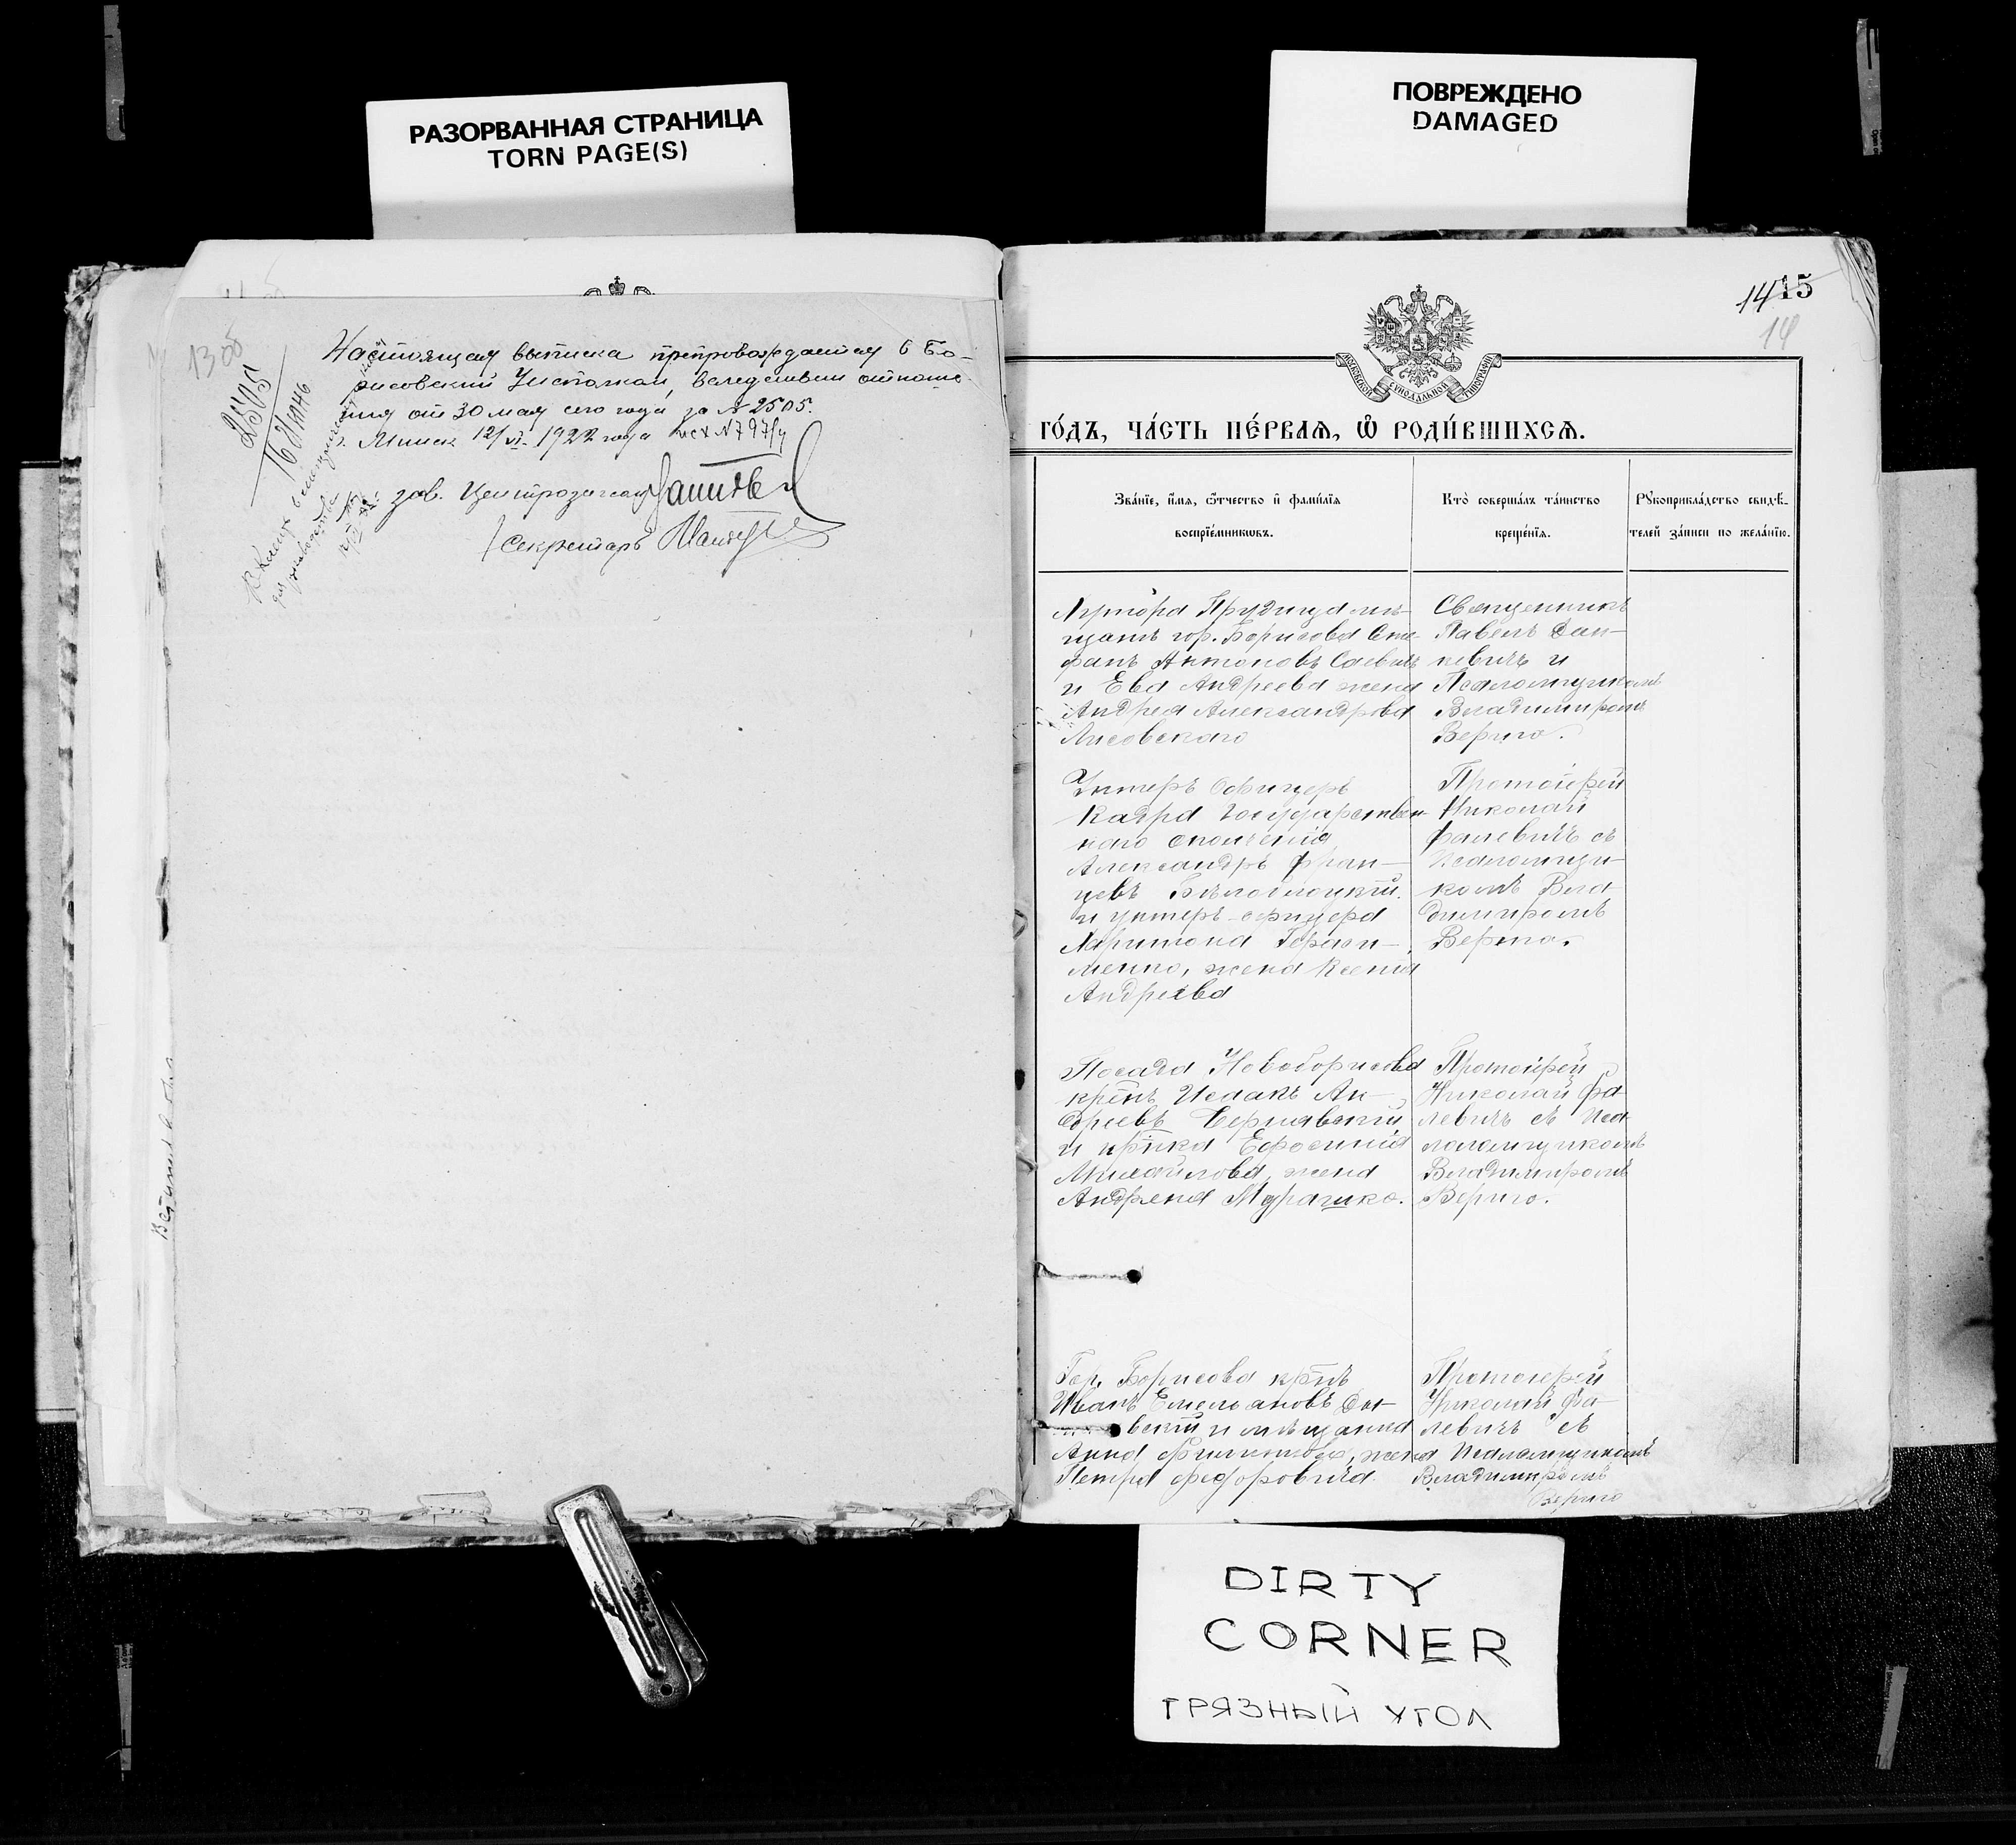 РАЗОРВАННАЯ СТРАНИЦА
TORN PAGE(S)
ПОВРЕЖДЕНО
DAMAGED
13 об
2505
16 Июня
Настоящая выписка препровождается в Бо-
рисовский Уисполком, вследствии отноше-
ния от 30 мая сего года за № 2505.
г. Минск 12/VI 1922 года исх № 797/ч
зав. Центрозагсом
Секретарь
14 15
14
МОСКОВСКОЙ СѴНОДАЛЬНОЙ ТИПОГРАФІИ
ГО́ДЪ, ЧА́СТЬ ПЕ́РВАѦ, Ѡ҆ РОДИ́ВШИХСѦ.
Зва́нїе, и҆́мѧ, ѻ҆́тчество и҆ фами́лїѧ
воспрїе́мникѡвъ.
Кто̀ соверша́лъ та́инство
креще́нїѧ.
Рꙋкоприкла́дство свидѣ́-
телей за́писи по жела́нїю.
Хутора Прудища мѣ-
щанъ гор. Борисова Сте-
фанъ Антоновъ Саевичъ
и Ева Андреева жена
Андрея Александрова
Лисовского
Священникъ
Павелъ Сан-
кевичъ и
Псаломщикомъ
Владимиромъ
Вериго.
Унтеръ Офицеръ
Кадра Государствен-
наго ополченія
Александръ Фран-
цевъ Бѣлоблоцкій
и унтеръ-офицера
Харитона Гераси-
менко, жена Ксенія
Андреева
Протоіерей
Николай
Фалевичъ съ
псаломщи-
комъ Вла-
димиромъ
Вериго.
Посада Новоборисова
кр-нъ Исаакъ Ан-
дреевъ Чернявскій
и кр-нка Ефросинія
Михайлова, жена
Андрея Мурашко.
Протоіерей
Николай Фа-
левичъ съ пса-
ломщикомъ
Владимиромъ
Вериго.
Гор. Борисова кр-нъ
Иванъ Емельяновъ
вскій и мѣщанка
Анна, жена
Петра Федоровича
Протоіерей
Николай Фа-
левичъ съ
псаломщикомъ
Владимиромъ
Вериго
DIRTY
CORNER
ГРЯЗНЫЙ УГОЛ